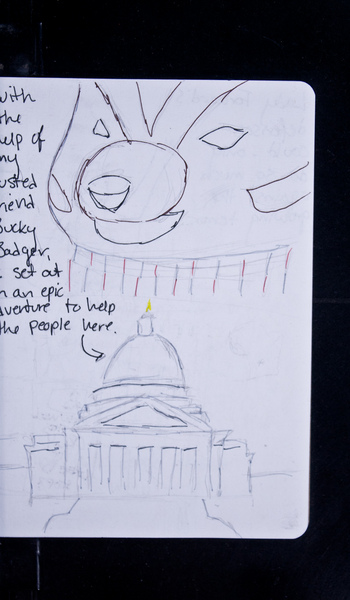 with
the
help of
my
trusted
friend
Bucky
Badger,
I set out
on an epic
adventure to help
the people here.